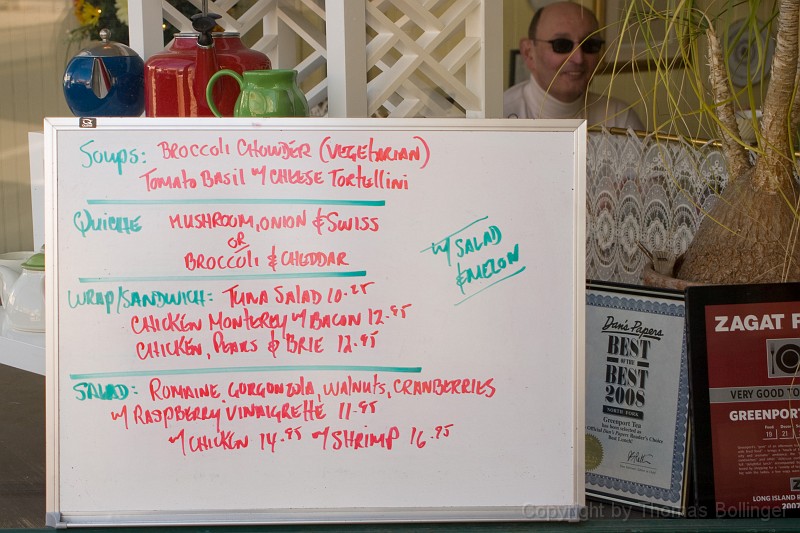 Soups: BROCCOLI CHOWDER (VEGETARIAN)
TOMATO BASIL W/ CHEESE TORTELLINI
QUICHE MUSHROOM, ONION & SWISS
OR
BROCCOLI & CHEDDAR
W/ SALAD
& MELON
WRAP/SANDWICH: TUNA SALAD 10.25
CHICKEN MONTEREY W/ BACON 12.95
CHICKEN, PEARS & BRIE 12.95
SALAD: ROMAINE, GORGONZOLA, WALNUTS, CRANBERRIES
W/ RASPBERRY VINAIGRETTE 11.95
W/ CHICKEN 14.95 W/ SHRIMP 16.95
Dan's Papers
BEST
OF THE
BEST
2008
NORTH FORK
Greenport Tea
has been selected as
Official Dan's Papers Reader's Choice
Best Lunch!
ZAGAT
VERY GOOD
GREENPORT
Food
19 21
LONG ISLAND
2007
Copyright by Thomas Bollinger